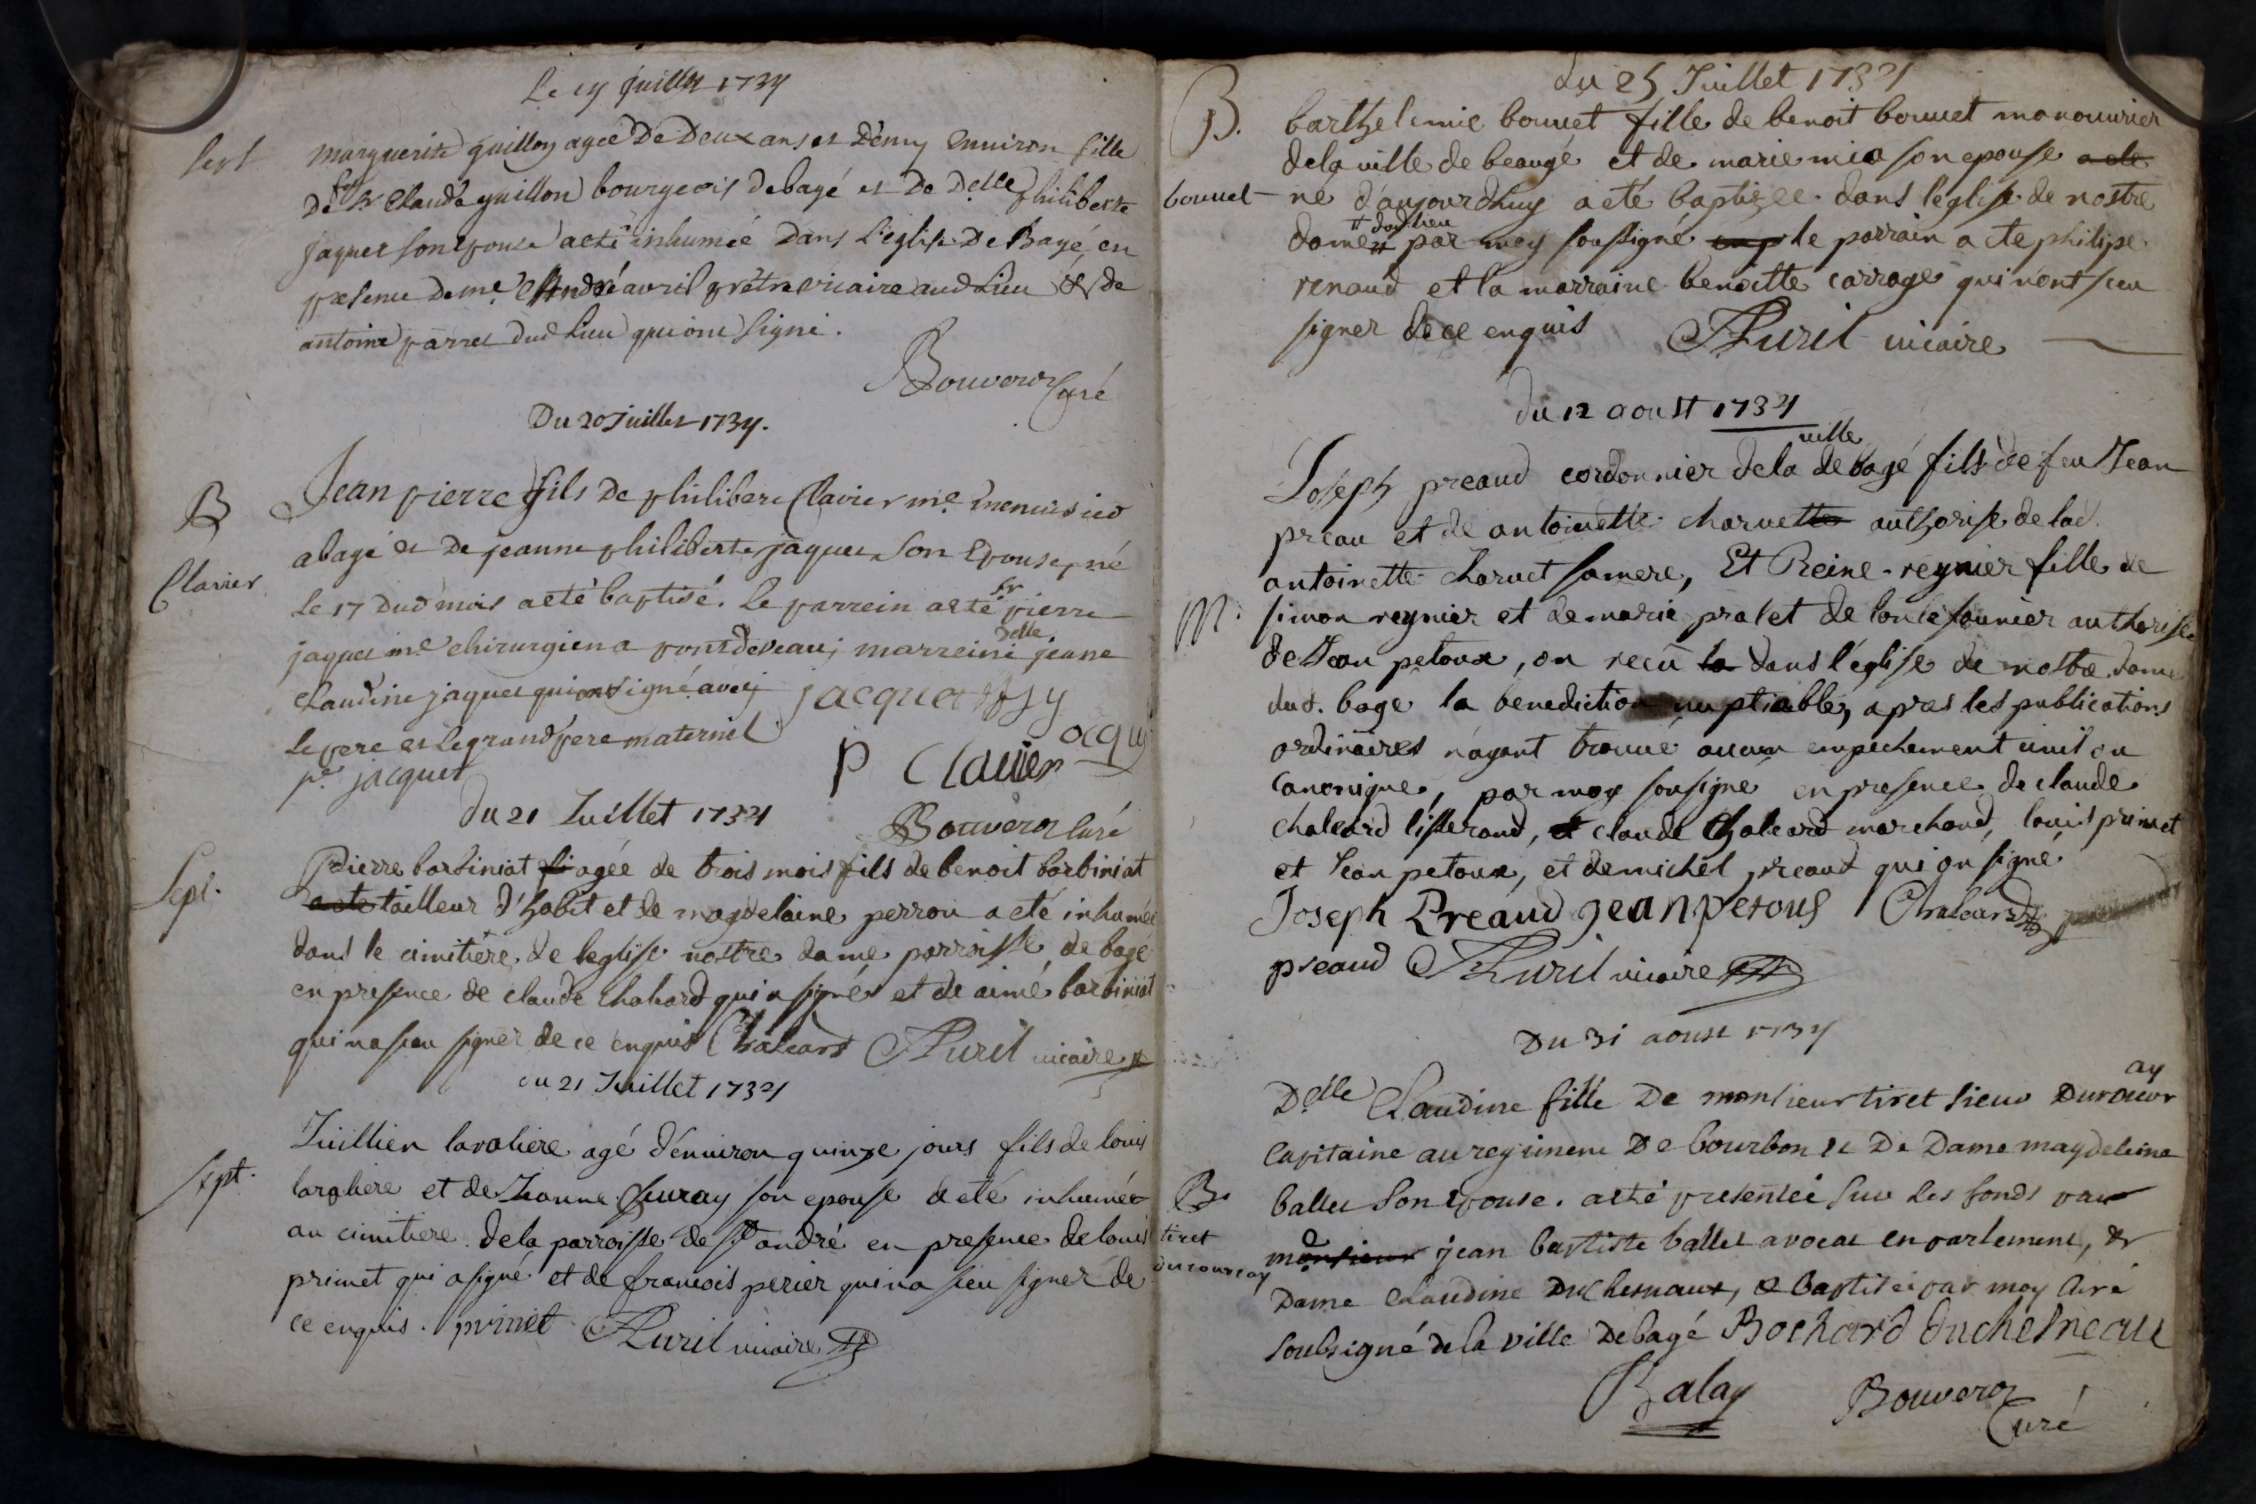 Le 19 juillet 1734
Sept
marguerite guillon agée De Deux ans et Demy environ fille
De Sr Claude guillon bourgeois debagé et De Delle philiberte
jaquet son epouse a eté inhumée Dans L'eglise De Bagé, en
presence De me André avril prêtre vicaire aud Lieu & de
antoine parret dud Lieu qui ont signé.
Bouverot Curé
Du 20 Juillet 1734.
B
Clavier
Jean pierre fils De philibert Clavier me menuisier
a bagé et De jeanne philiberte jaquet Son Epouse, né
le 17 Dud mois a eté baptisé. Le parrein a eté Sr pierre
jaquet me chirurgien a pontdeveau; marreine Delle jeane
claudine jaquet qui ont signé avec
Le pere et Le grand pere maternel
jacquet
pe jacquet
P Clavier
Bouverot Curé
du 21 Juillet 1734
Sept.
Pierre borbiniat fi agée de trois mois fils de benoit borbiniat
a ete tailleur d'habit et de magdelaine perron a eté inhumée
dans le cimitiere de leglise nostre dame parroisse de bage
en presence de claude chaleard qui a signé et de aimé borbiniat
qui na sceu signer de ce enquis Chaleard Auril vicaire
du 21 Juillet 1734
Sept.
Juillien lavoliere agé d'enuiron quinze jours fils de louis
et de Jeanne son epouse a eté inhumée
au cimitiere de la parroisse de St andré en presence de louis
primet qui a signé et de francois perier qui na sceu signer de
ce enquis. primet Auril vicaire
du 25 Juillet 1734
B.
bouuet
barthelemie bouuet fille de benoit bouuet manouurier
dela uille de beaugé et de marie mia son epouse a ete
né d'aujourdhuy a eté baptizee dans leglise de nostre
dame # dud lieu # par moy sousigné le parrain a ete philipe
renaud et la marraine benoitte carrage qui nont sceu
signer de ce enquis Auril vicaire
du 12 aoust 1734
M.
Joseph preaud cordonnier dela uille de bagé fils de feu Jean
preau et de antoinette charuet authorise de lad.
antoinette charuet sa mere, Et Reine reynier fille de
simon reynier et de marie pralet de authorisée
de Jean petoux, on recu la dans l'église de nostre dame
dud. bage la benediction nuptiable, apres les publications
ordinaires n'ayant trouué aucun empechement ciuil ou
canonique, par moy sousigné en presence de claude
chaleard tisserand, et claude chaleard marchand, louis primet
et Jean petoux, et de michel preaud qui on signé
Joseph Preaud jean petous Chaleard
preaud Auril vicaire
Du 31 aoust 1734
B.
tiret
ducouray
Delle Claudine fille De monsieur tiret sieur
Capitaine au regiment De bourbon et De Dame magdeleine
ballet Son epouse. a eté presentée sur les fonds par
me monsieur jean baptiste ballet avocat en parlement, &
Dame Claudine Duchesnaux, & baptisée par moy Curé
soubsigné de la ville De bagé Bochard duchesneau
Balay Bouverot
Curé